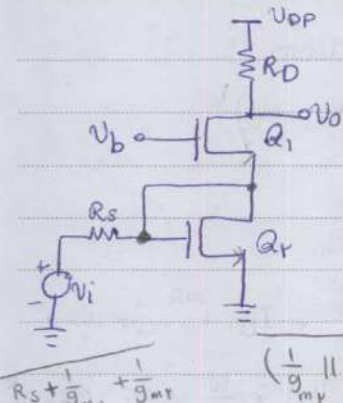 V_DD
R_D
V_o
V_b
Q_1
R_s
Q_2
+
V_i
-
R_s + 1/g_m + 1/g_m2
(1/g_m2 ||